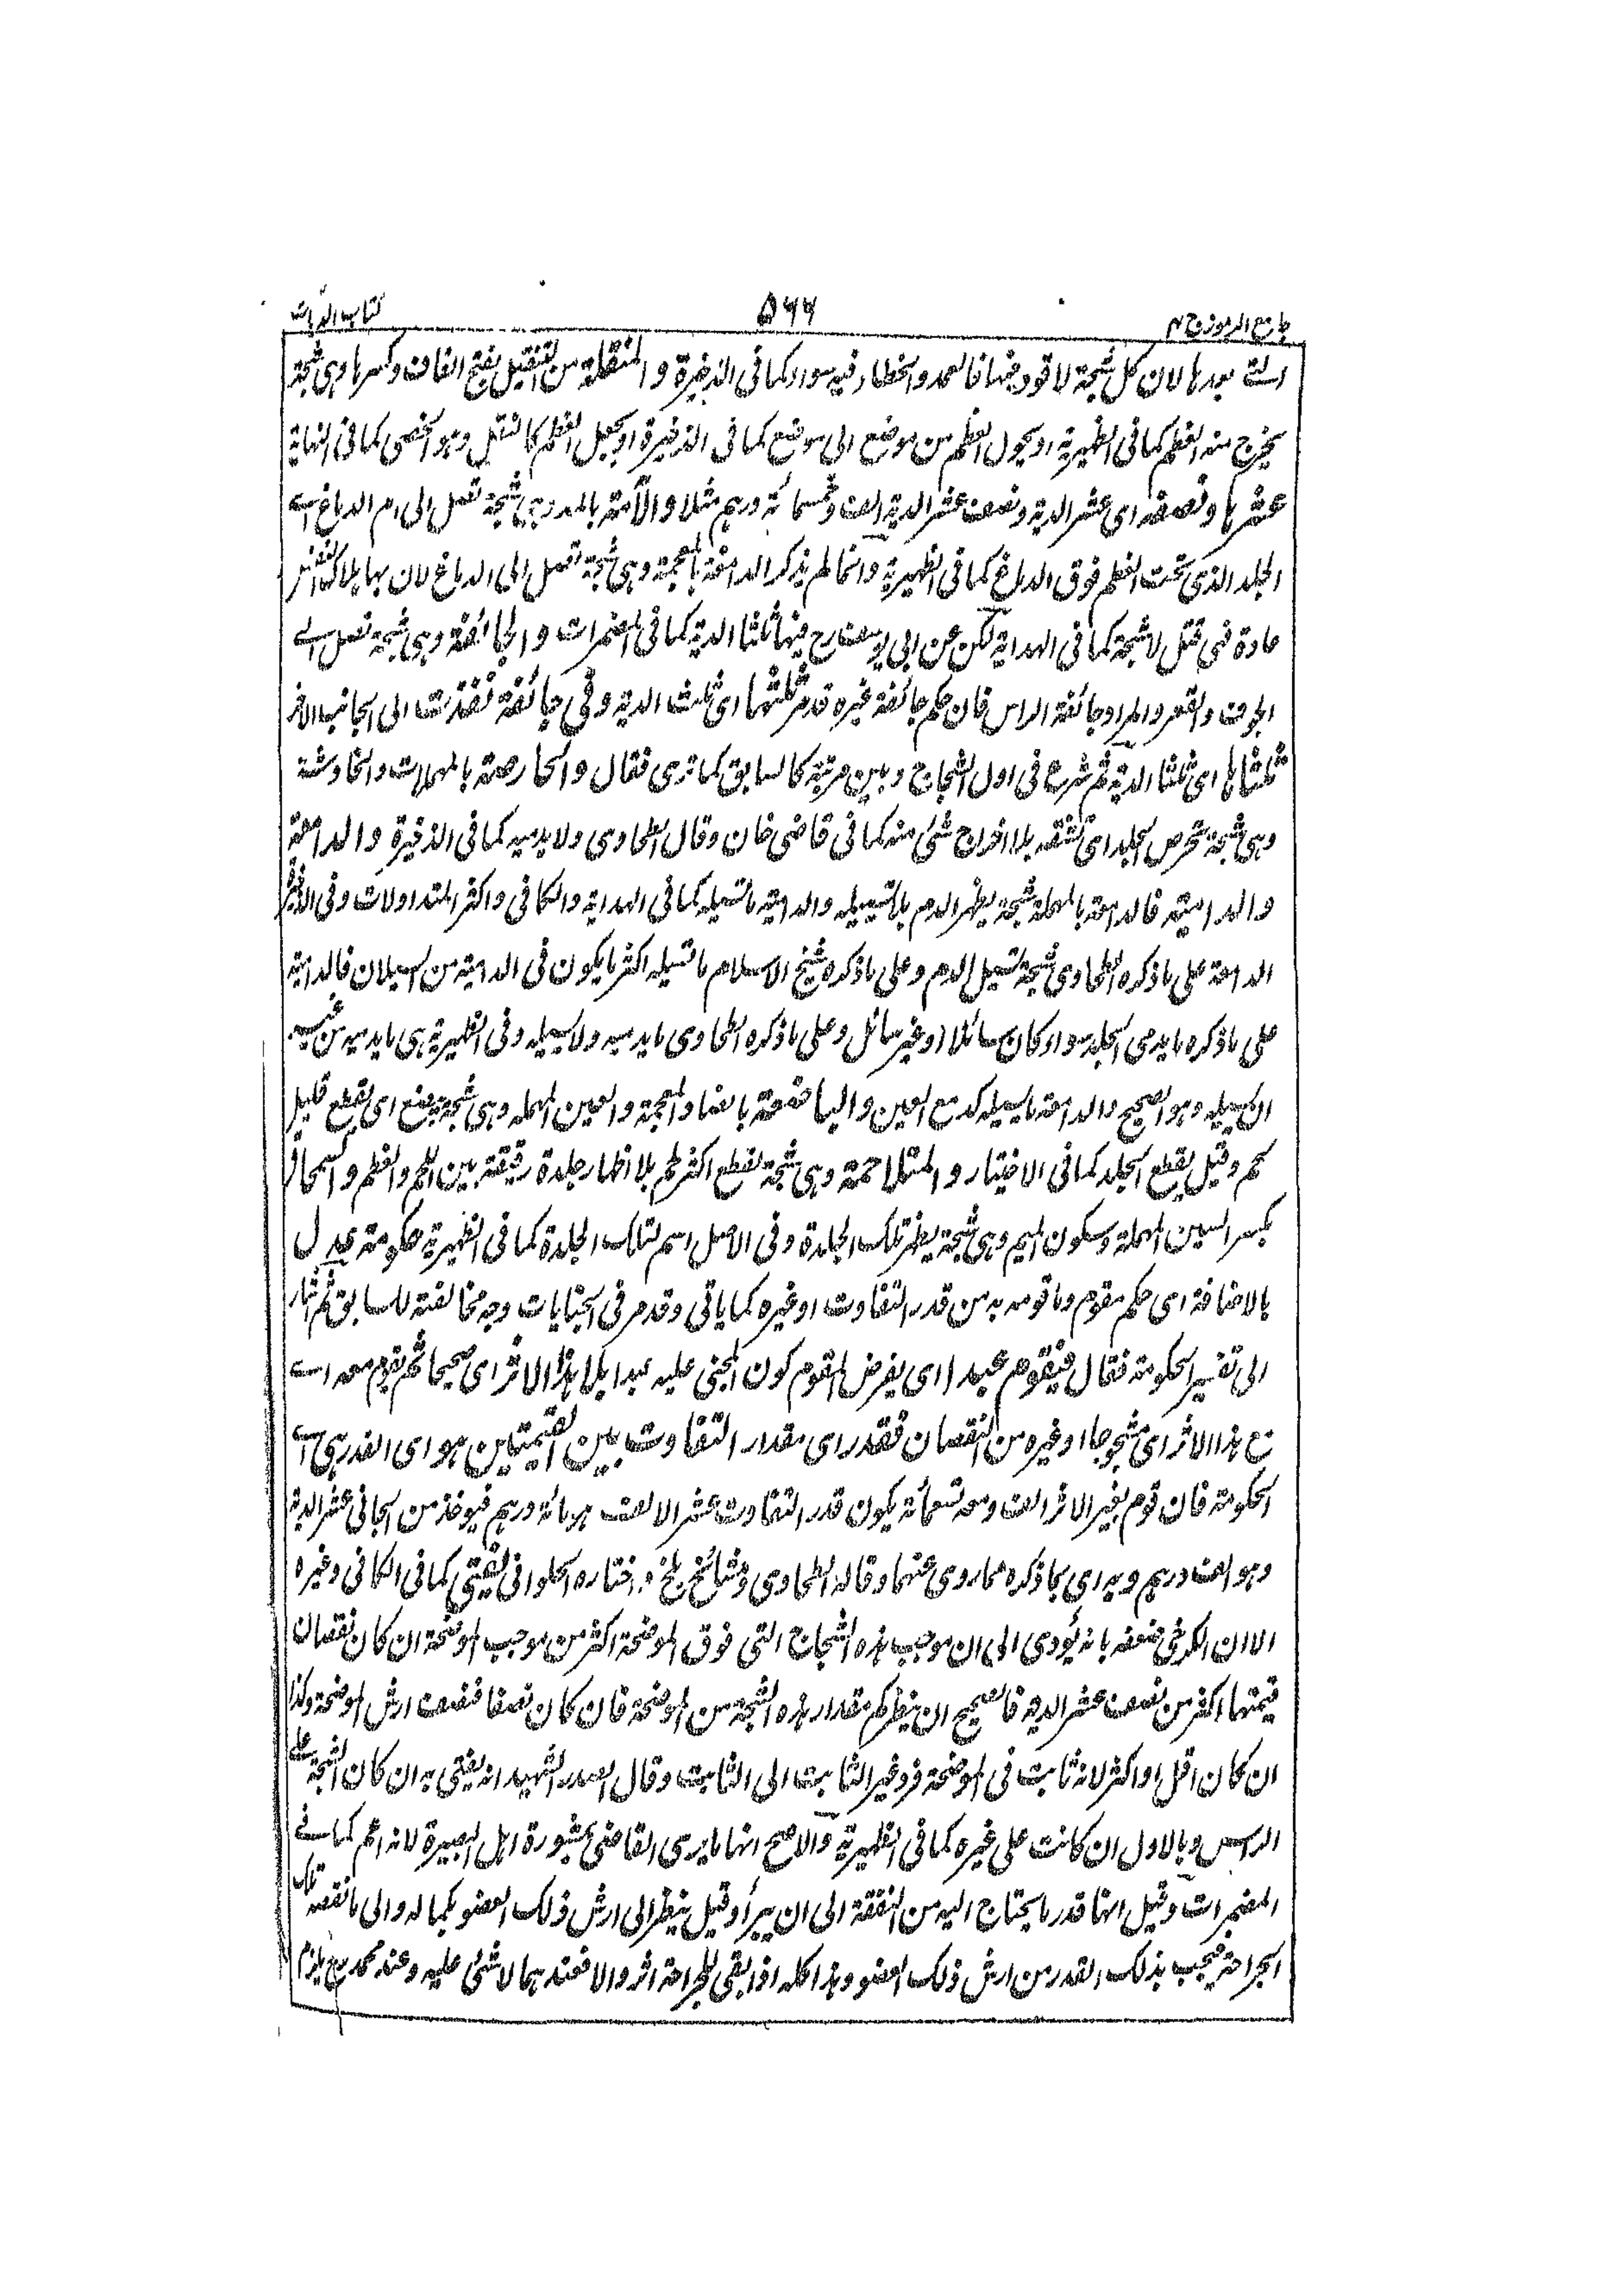 جامع الرموز ج ٢ ٥٦٦ كتاب الديات
التى بعدها لان كل شجة لا قود فيها فالعمد والخطاء فيه سواء كما فى الذخيرة و المنقلة من التنقيل بفتح القاف وكسرها وهى شجة
يخرج منه العظم كما فى الظهيرية او يحول العظم من موضع الى موضع كما فى الذخيرة او يجعل العظم كالنقل وهو الحصى كما فى النهاية
عشرها و نصفه اى عشر الدية ونصف عشر الدية الف وخمسمائة درهم مثلا و الآمة بالمد وهى شجة تصل الى ام الدماغ اے
الجلد الذى تحت العظم فوق الدماغ كما فى الظهيرية وانما لم يذكر الدامغة بالمعجمة وهى شجة تصل الى الدماغ لان بها هلاك النفس
عادة فهى قتل لا شجة كما فى الهداية لكن عن ابى يوسف رح فيها ثلثا الدية كما فى المضمرات و الجائفة وهى شجة تصل الے
الجوف والقعر والمراد جائفة الراس فان حكم جائفة غيره قد مر ثلثها اى ثلث الدية و فى جائفة نفذت الى الجانب الاخر
ثلثاها اى ثلثا الدية ثم شرع فى اول الشجاج وبين مرتبة كالسابق كما ترى فقال و الحارصة بالمهملات والخاوشة
وهى شجة تحرص الجلد اى تشقه بلا اخراج شئ منه كما فى قاضى خان وقال الطحاوى ولا يدميه كما فى الذخيرة و الدامعة
و الدامية فالدامعة بالمهملة شجة يظهر الدم بلا تسييله والدامية ما تسيله كما فى الهداية والكافى واكثر المتداولات وفى الذخيرة
الدامعة على ما ذكره الطحاوى شجة تسيل الدم وعلى ما ذكره شيخ الاسلام ما تسيله اكثر ما يكون فى الدامية من السيلان فالدامية
على ما ذكره ما يدمى الجلد سواء كان سائلا او غير سائل وعلى ما ذكره الطحاوى ما يدميه ولا يسيله وفى الظهيرية هى ما يدميه من غير
ان يسيله وهو الصحيح والدامعة ما يسيله كدمع العين و الباضعة بالضاد المعجمة والعين المهملة وهى شجة تبضع اى تقطع قليل
لحم وقيل يقطع الجلد كما فى الاختيار و المتلاحمة وهى شجة تقطع اكثر لحم بلا اظهار جلدة رقيقة بين اللحم والعظم و السمحاق
بكسر السين المهملة وسكون الميم وهى شجة يظهر تلك الجلدة وفى الاصل اسم لتلك الجلدة كما فى الظهيرية حكومة عدل
بالاضافة اى حكم مقوم وما قومه به من قدر التفاوت او غيره كما ياتى وقد مر فى الجنايات وجه مخالفته للسابق ثم اشار
الى تفسير الحكومة فقال فيقوم عبدا اى يفرض المقوم كون المجنى عليه عبدا بلا هذا الاثر اى صحيحا ثم يقوم معه اے
مع هذا الاثر اى مشجوجا او غيره من النقصان فقدر اى مقدار التفاوت بين القيمتين هو اى القدر هى اے
الحكومة فان قوم بغير الاثر الف ومعه تسعمائة يكون قدر التفاوت عشر الالف هو مائة درهم فيوخذ من الجانى عشر الدية
وهو الف درهم و به اى بما ذكره مما روى عنهما وقاله الطحاوى ومشائخ بلخ واختاره الحلوانى يفتى كما فى الكافى وغيره
الا ان الكرخى ضعفه بانه يؤدى الى ان موجب هذه الشجاج التى فوق الموضحة اكثر من موجب الموضحة ان كان نقصان
قيمتها اكثر من نصف عشر الدية فالصحيح ان ينظر كم مقدار هذه الشجة من الموضحة فان كان نصفا فنصف ارش الموضحة وكذا
ان كان اقل او اكثر لانه ثابت فى الموضحة فرد غير الثابت الى الثابت وقال الصدر الشهيد انه يفتى به ان كان الشجة على
الراس وبالاول ان كانت على غيره كما فى الظهيرية والاصح انها ما يرى القاضى بمشورة اهل البصيرة لانه اعم كما فے
المضمرات وقيل انها قدر ما يحتاج اليه من النفقة الى ان يبرأ وقيل ينظر الى ارش ذلك العضو بكماله والى ما نقصه تلك
الجراحة فيجب بذلك القدر من ارش ذلك العضو وهذا كله اذا بقى للجراحة اثر والا فعندهما لا شئ عليه وعند محمد رح يلزم